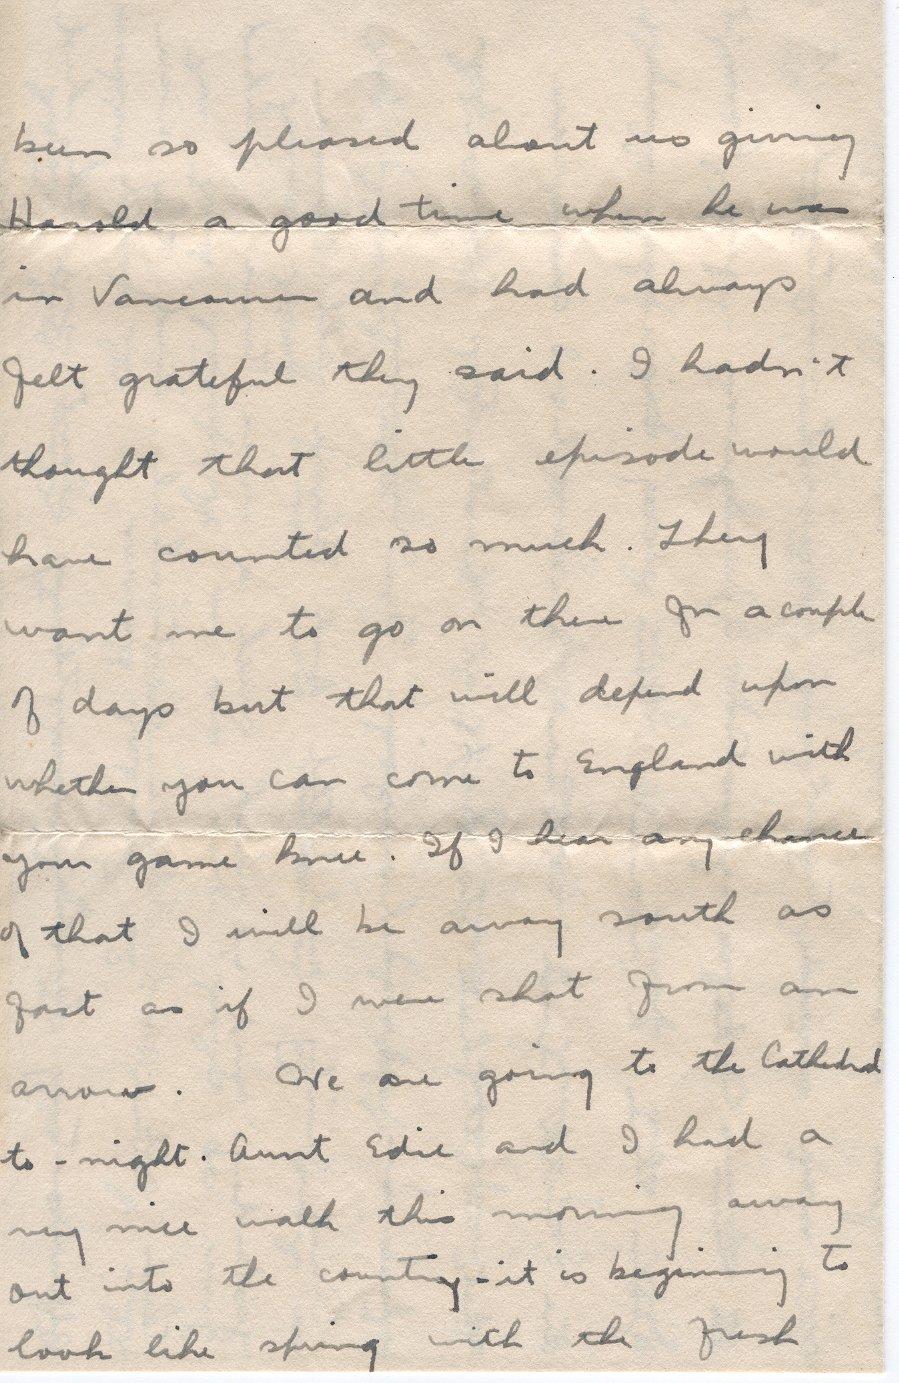 been so pleased about us giving
Harold a good time when he was
in Vancouver and had always
felt grateful they said. I hadn't
thought that little episode would
have counted so much. They
want me to go on there for a couple
of days but that will depend upon
whether you can come to England with
your game knee. If I hear any chance
of that I will be away south as
fast as if I were shot from an
arrow. We are going to the Cathedral
to-night. Aunt Edie and I had a
very nice walk this morning away
out into the country - it is beginning to
look like spring with the fresh